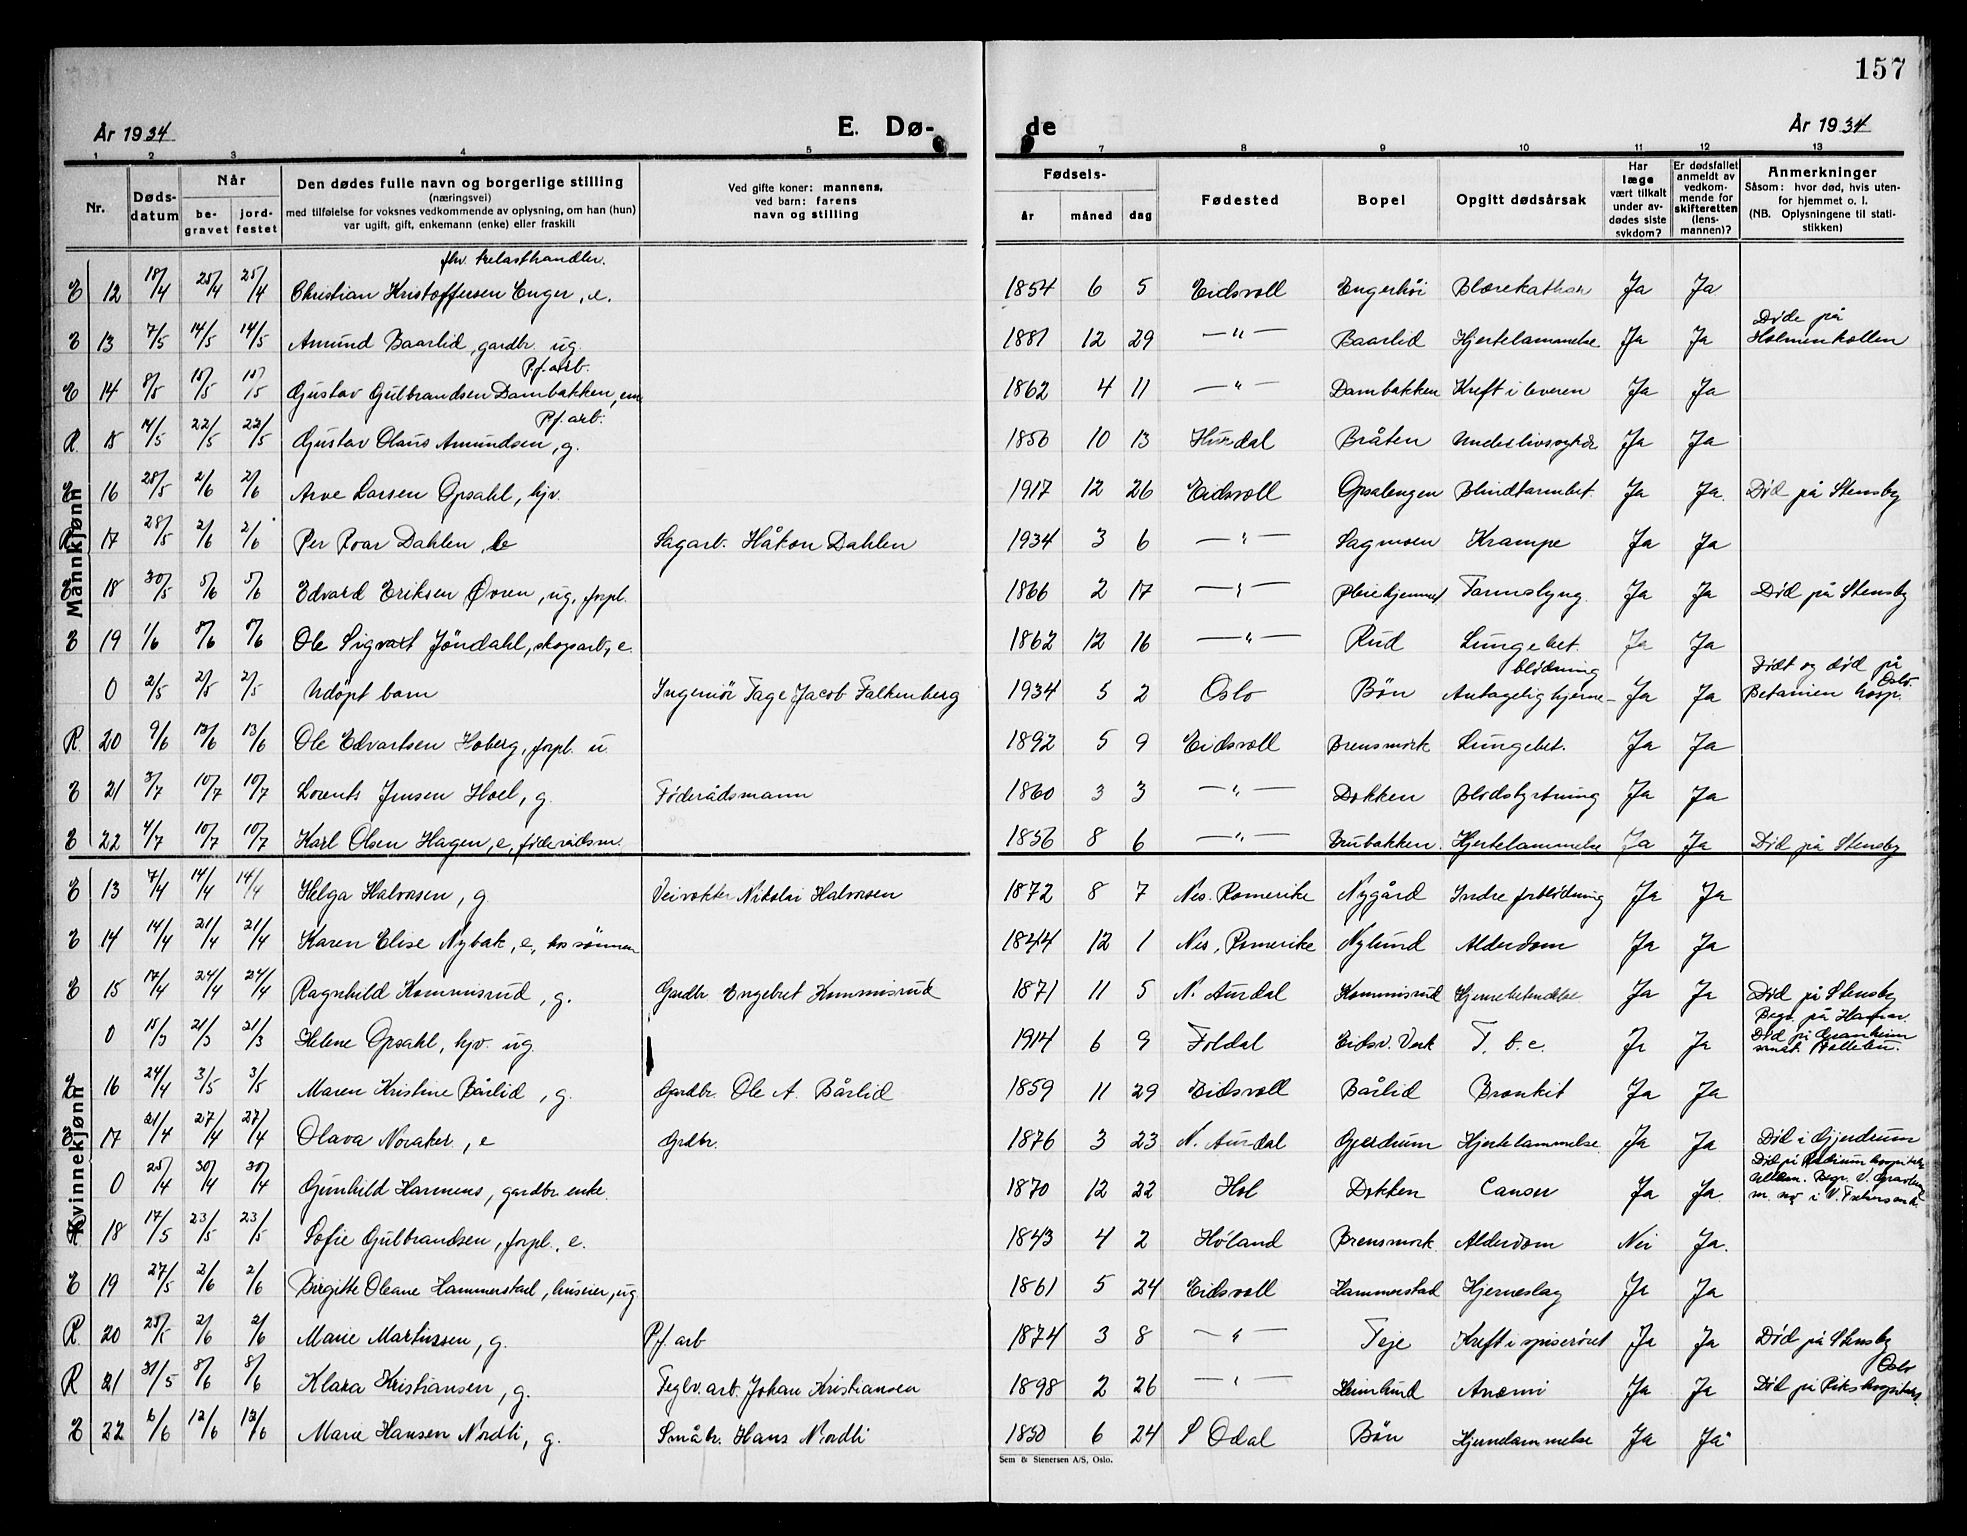 157
År 1934 E. Dø- de År 1934
1 2 3 4 5 7 8 9 10 11 12 13
Nr. Døds-datum Når be-gravet jord-festet Den dødes fulle navn og borgerlige stilling (næringsvei) med tilføielse for voksnes vedkommende av oplysning, om han (hun) var ugift, gift, enkemann (enke) eller fraskill Ved gifte koner: mannens, ved barn: farens navn og stilling Fødsels- år måned dag Fødested Bopel Opgitt dødsårsak Har læge vært tilkalt under av-dødes siste sykdom? Er dødsfallet anmeldt av vedkom-mende for skifteretten (lens-mannen)? Anmerkninger Såsom: hvor død, hvis uten-for hjemmet o. l. (NB. Oplysningene til stati-stikken)
Mannkjønn
fhv. trelasthandler.
E 12 18/4 25/4 25/4 Christian Kristoffersen Enger, e. 1854 6 5 Eidsvoll Engerhöi Blærekatharr Ja Ja
E 13 7/5 14/5 14/5 Amund Baarlid, gardbr. ug. 1881 12 29 —"— Baarlid Hjertelammelse Ja Ja Døde på Holmenkollen
Pf. arb.
E 14 8/5 15/5 15/5 Gustav Gulbrandsen Dambakken, em 1862 4 11 —"— Dambakken Kreft i leveren Ja Ja
Pf. arb.
R 15 14/5 22/5 22/5 Gustav Olaus Amundsen, g. 1856 10 13 Hurdal Bråten Underlivssykd. Ja Ja
E 16 28/5 2/6 2/6 Arve Larsen Opsahl, hjv. 1917 12 26 Eidsvoll Opsalengen Blindtarmbet. Ja Ja. Død på Stensby
R 17 28/5 2/6 2/6 Per Roar Dahlen, b Sagarb. Håkon Dahlen 1934 3 6 —"— Sagmoen Krampe Ja Ja
E 18 30/5 5/6 5/6 Edvard Eriksen Øvren, ug, forpl. 1866 2 17 —"— Pleiehjemmet Tarmslyng. Ja Ja Død på Stensby
E 19 1/6 8/6 8/6 Ole Sigvart Jöndahl, skogsarb, e. 1862 12 16 —"— Rud Lungebet. Ja Ja
0 2/5 2/5 2/5 Udöpt barn Ingeniör Tage Jacob Falkenberg 1934 5 2 Oslo Bön Antagelig hjerne-blödning Ja Ja Födt og död på Betanien hosp. Oslo.
R. 20 9/6 13/6 13/6 Ole Edvartsen Hoberg, forpl. u. 1892 5 9 Eidsvoll Brensmork Lungebet. Ja Ja
E 21 3/7 10/7 10/7 Lorents Jensen Hoel, g. Föderådsmann 1860 3 3 —"— Dokken Blodstyrtning Ja Ja
E 22 4/7 10/7 10/7 Karl Olsen Hagen, e, föderådsm. 1856 8 6 —"— Brubakken. Hjertelammelse Ja Ja Död på Stensby
Kvinnekjønn
E 13 7/4 14/4 14/4 Helga Halvorsen, g Veivokter Nikolai Halvorsen 1872 8 7 Nes. Romerike Nygård Indre forblödning Ja Ja
E 14 14/4 21/4 21/4 Karen Elise Nybak, e, hos sönnen 1844 12 1 Nes, Romerike Nylund Alderdom Ja Ja
E 15 17/4 24/4 24/4 Ragnhild Kommisrud, g. Gardbr. Engebret Kommisrud 1871 11 5 N. Aurdal Kommisrud Hjernebetendelse Ja Ja Död på Stensby
0 15/3 21/3 21/3 Helene Opsahl, hjv. ug. 1914 6 9 Foldal Eidsv. Verk T. b. c. Ja Ja Begr. på Hamar. Död på Granheim sanat. Follebu.
E 16 24/4 3/5 3/5 Maren Kristine Bårlid, g. Gardbr. Ole A. Bårlid 1859 11 29 Eidsvoll Bårlid Bronkit Ja Ja
E 17 21/4 27/4 27/4 Olava Noraker, e Grdbr. 1876 3 23 N. Aurdal Gjerdrum Hjertelammelse. Ja Ja Död i Gjerdrum
0 25/4 30/4 30/4 Gunhild Harmens, gardbr. enke. 1870 12 22 Hol Dokken Canser Ja Ja. Död på Radiumhospitalet Begr. V. m. no i V.
R. 18 17/5 23/5 23/5 Sofie Gulbrandsen, forpl., e. 1843 4 2 Höland Brensmork. Alderdom Nei Ja.
E 19 27/5 2/6 2/6 Birgitte Oleane Hammerstad, huseier, ug 1861 5 24 Eidsvoll Hammerstad Hjerneslag Ja Ja
R. 20 25/5 2/6 2/6 Marie Martinsen, g. Pf. arb 1874 3 8 —"— Teje Kreft i spiseröret Ja Ja Död på Stensby
R 21 31/5 8/6 8/6 Klara Kristiansen, g. Teglv. arb. Johan Kristiansen 1898 2 26 —"— Heimlund Anæmi Ja Ja Död på Rikshospitalet. Oslo
E 22 6/6 12/6 12/6 Marie Hansen Nordli, g. Småbr. Hans Nordli 1850 6 24 S Odal Bön Hjernelammelse Ja Ja
Sem & Stenersen A/S, Oslo.